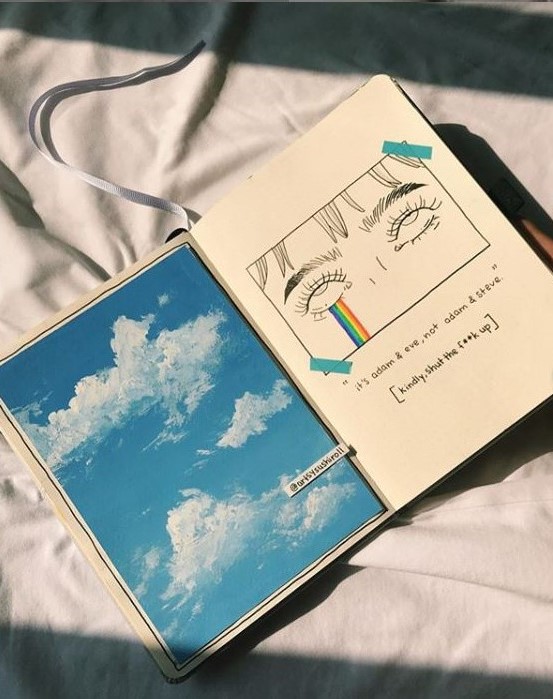 @artsysushiroll
"it's adam & eve, not adam & steve."
[kindly, shut the f**k up]